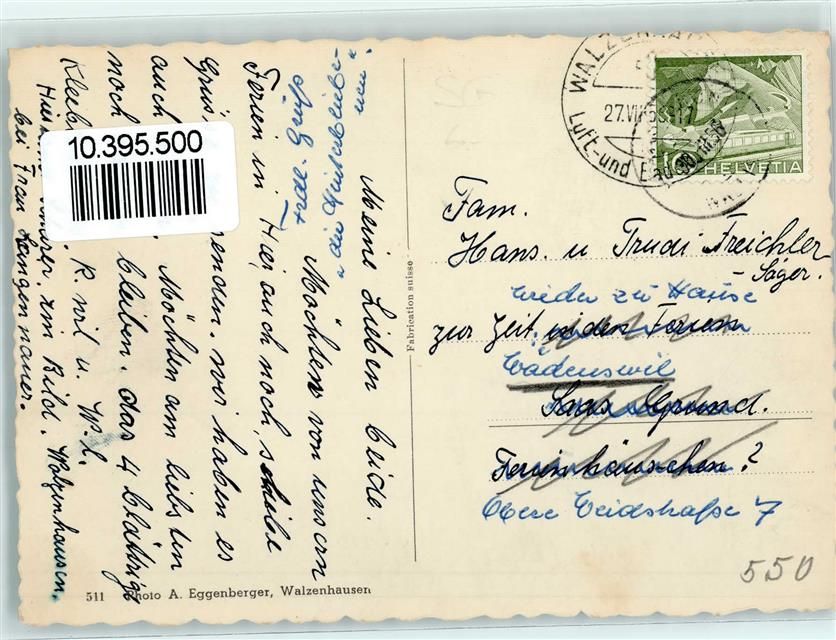 10.395.500
Meine Lieben beide.
Möchten von unsern
Ferien in Hier, auch noch,
Grüs senden. wir haben es
auch Möchten am liebsten
noch bleiben. das 4 blättrige
Kleeb R. wil u. W. L.
Hier unser. zim Bild. Walzenhausen.
bei Frau Langennauer.
511 Photo A. Eggenberger, Walzenhausen
Fabrication suisse
WALZENHAUSEN
27.VII.53
Luft- und Bad
10
HELVETIA
Fam.
Hans. u Trudi Freichler
-Säger.
wieder zu Hause
zur Zeit in den Ferien
Wädenswil
Saas Grund.
Ferienhäuschen?
Obere Weidstraße 7
550